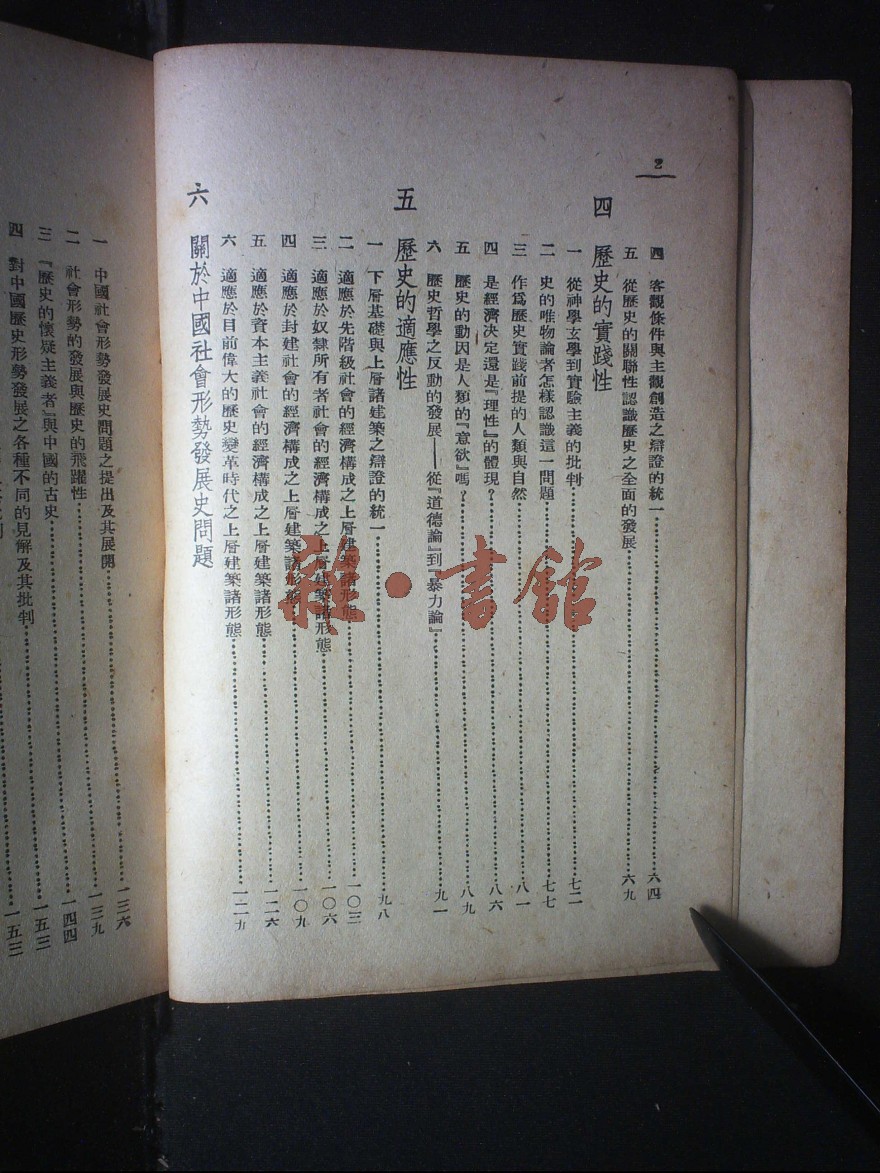 2
四 客觀條件與主觀創造之辯證的統一……六四
五 從歷史的關聯性認識歷史之全面的發展……六九
四 歷史的實踐性
一 從神學玄學到實驗主義的批判……七二
二 史的唯物論者怎樣認識這一問題……七七
三 作爲歷史實踐前提的人類與自然……八一
四 是經濟決定還是『理性』的體現？……八六
五 歷史的動因是人類的『意欲』嗎？……八九
六 歷史哲學之反動的發展——從『道德論』到『暴力論』……九一
五 歷史的適應性
一 下層基礎與上層諸建築之辯證的統一……九八
二 適應於先階級社會的經濟構成之上層建築諸形態……一〇三
三 適應於奴隸所有者社會的經濟構成之上層建築諸形態……一〇六
四 適應於封建社會的經濟構成之上層建築諸形態……一〇九
五 適應於資本主義社會的經濟構成之上層建築諸形態……一二六
六 適應於目前偉大的歷史變革時代之上層建築諸形態……一二九
六 關於中國社會形勢發展史問題
一 中國社會形勢發展史問題之提出及其展開……一三六
二 社會形勢的發展與歷史的飛躍性……一三九
三 『歷史的懷疑主義者』與中國的古史……一四四
四 對中國歷史形勢發展之各種不同的見解及其批判……一五三
書館